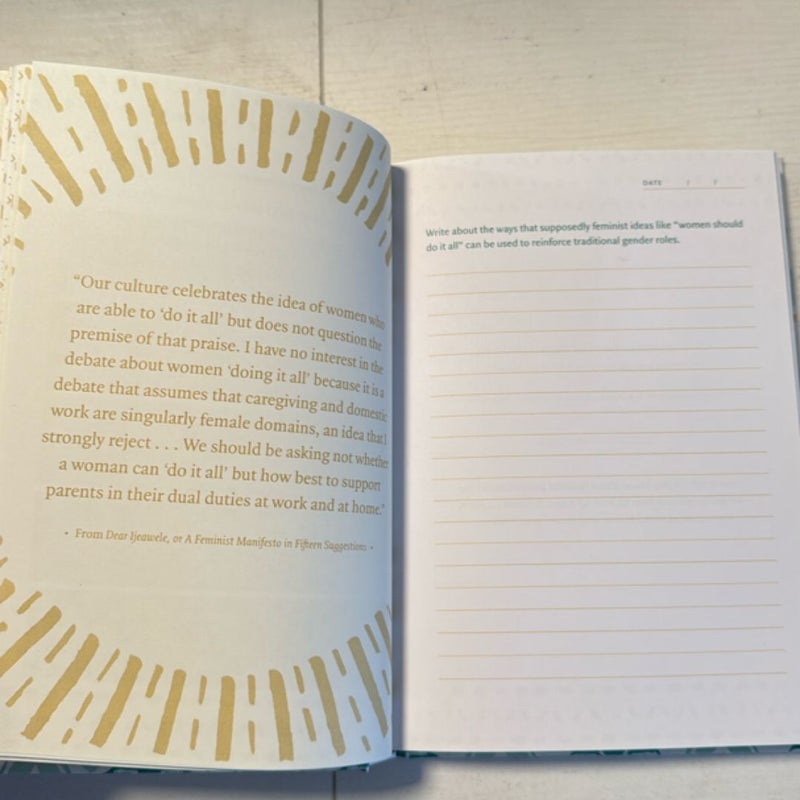 “Our culture celebrates the idea of women who
are able to ‘do it all’ but does not question the
premise of that praise. I have no interest in the
debate about women ‘doing it all’ because it is a
debate that assumes that caregiving and domestic
work are singularly female domains, an idea that I
strongly reject . . . We should be asking not whether
a woman can ‘do it all’ but how best to support
parents in their dual duties at work and at home.”
• From Dear Ijeawele, or A Feminist Manifesto in Fifteen Suggestions •
DATE / /
Write about the ways that supposedly feminist ideas like “women should
do it all” can be used to reinforce traditional gender roles.